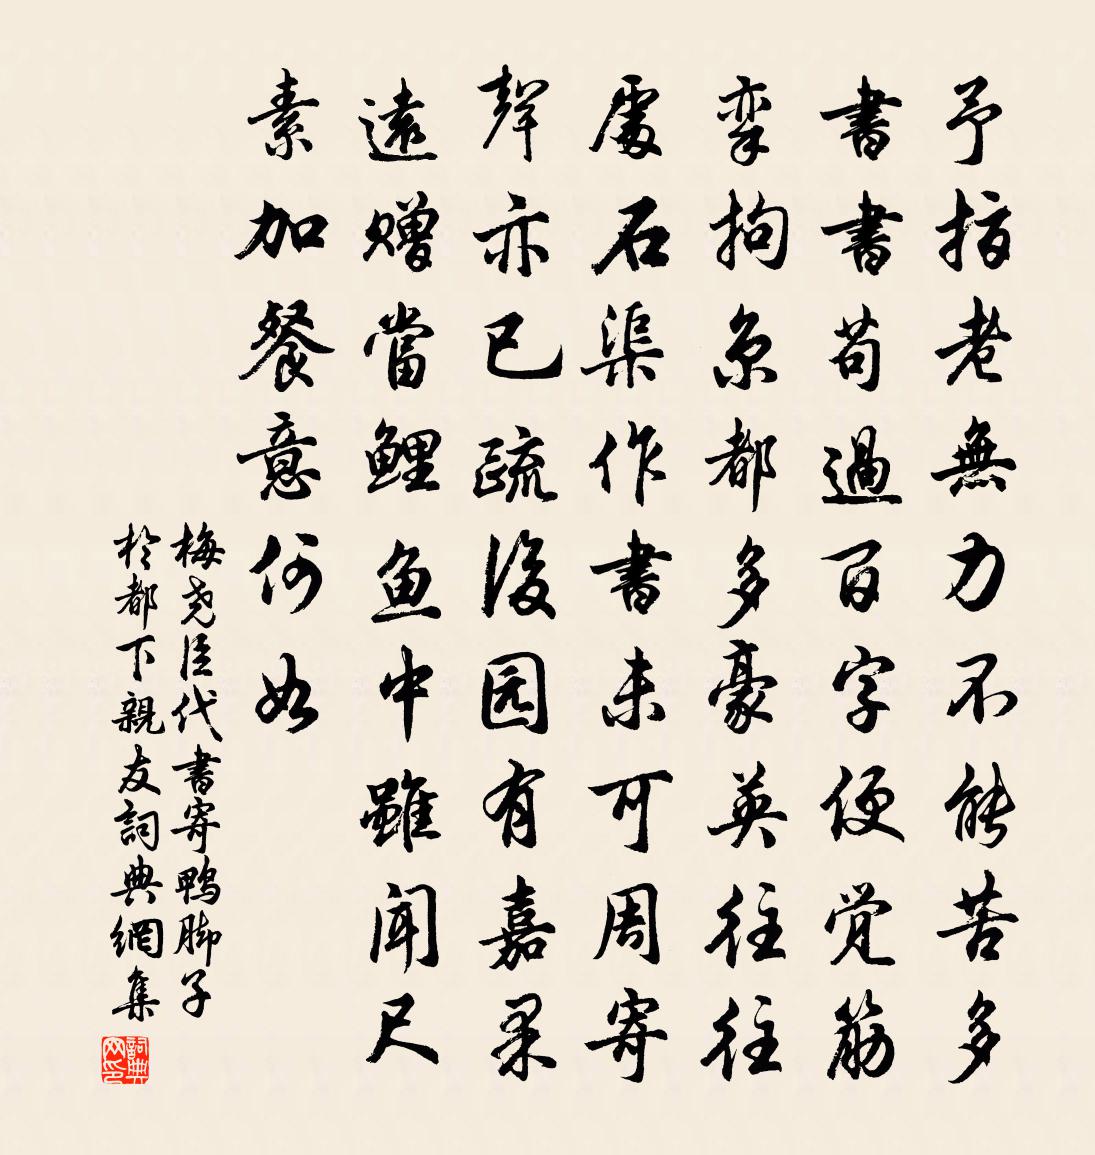 予指老無力不能苦多
書書苟過百字便覚筋
挛拘京都多豪英往往
處石渠作書未可周寄
聲亦已疏後园有嘉果
遠赠當鲤鱼中雖闻尺
素加餐意何如
梅尧臣代書寄鴨脚子
於都下親友詞典網集
詞典
网印